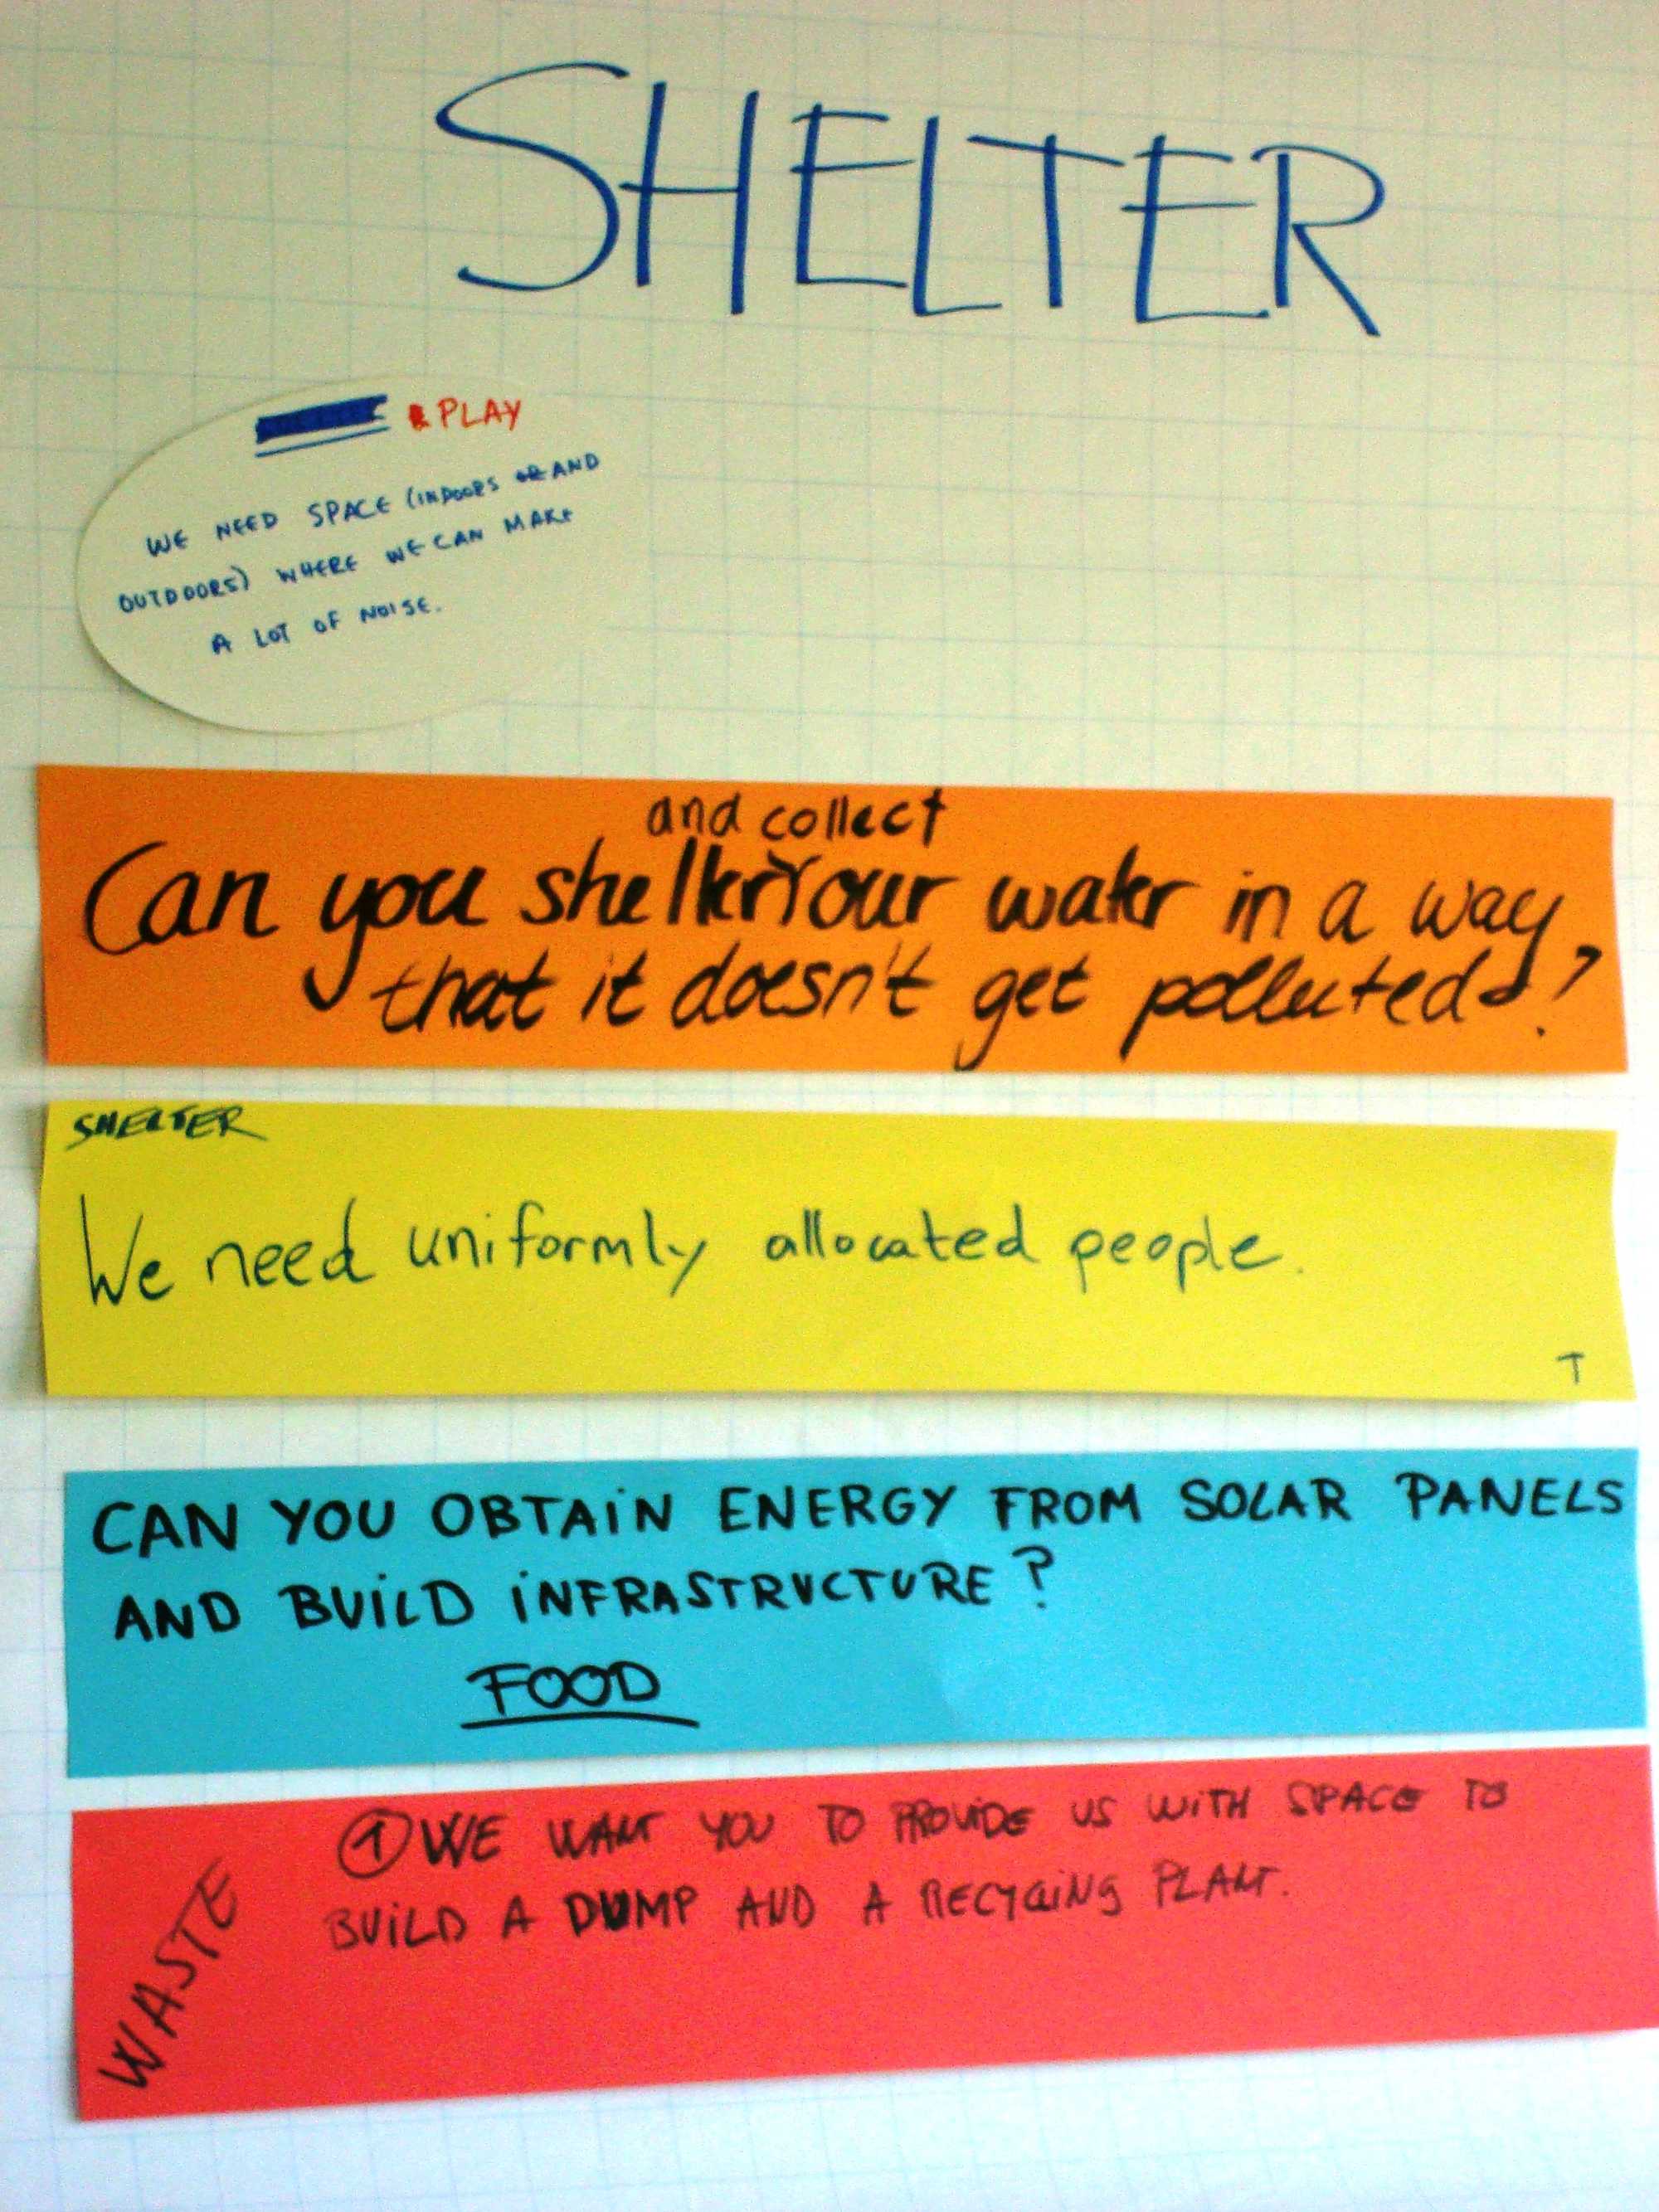 SHELTER
PLAY
WE NEED SPACE (INDOORS OR AND
OUTDOORS) WHERE WE CAN MAKE
A LOT OF NOISE.
and collect
Can you shelter our water in a way
that it doesn't get polluted?
SHELTER
We need uniformly allocated people.
T
CAN YOU OBTAIN ENERGY FROM SOLAR PANELS
AND BUILD INFRASTRUCTURE?
FOOD
WASTE
1 WE WANT YOU TO PROVIDE US WITH SPACE TO
BUILD A DUMP AND A RECYCLING PLANT.